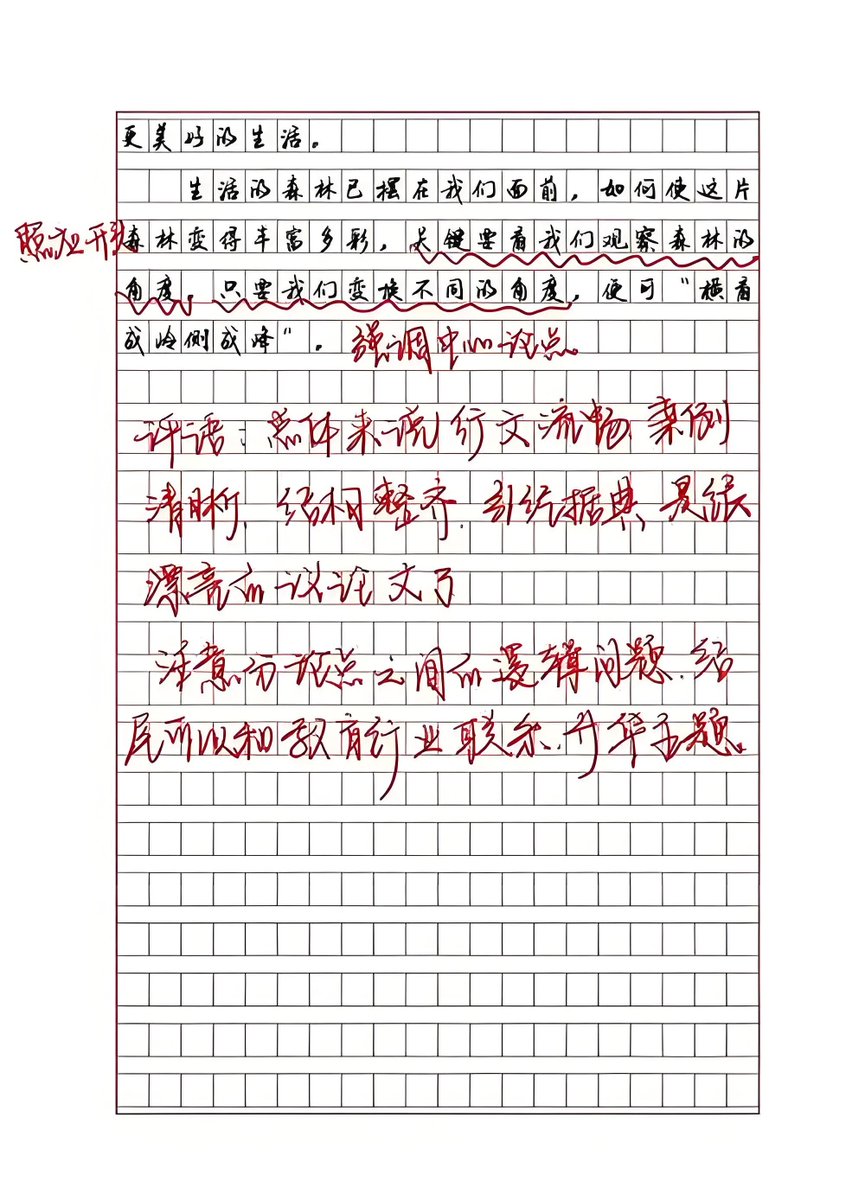 更美好的生活。
生活的森林已摆在我们面前，如何使这片
照应开头
森林变得丰富多彩，关键要看我们观察森林的
角度，只要我们变换不同的角度，便可“横看
成岭侧成峰”。 强调中心论点。
评语：总体来说，行文流畅、案例
清晰、结构整齐、引经据典、是很
漂亮的议论文了
注意分论点之间的逻辑问题，结
尾可以和教育行业联系、升华主题。